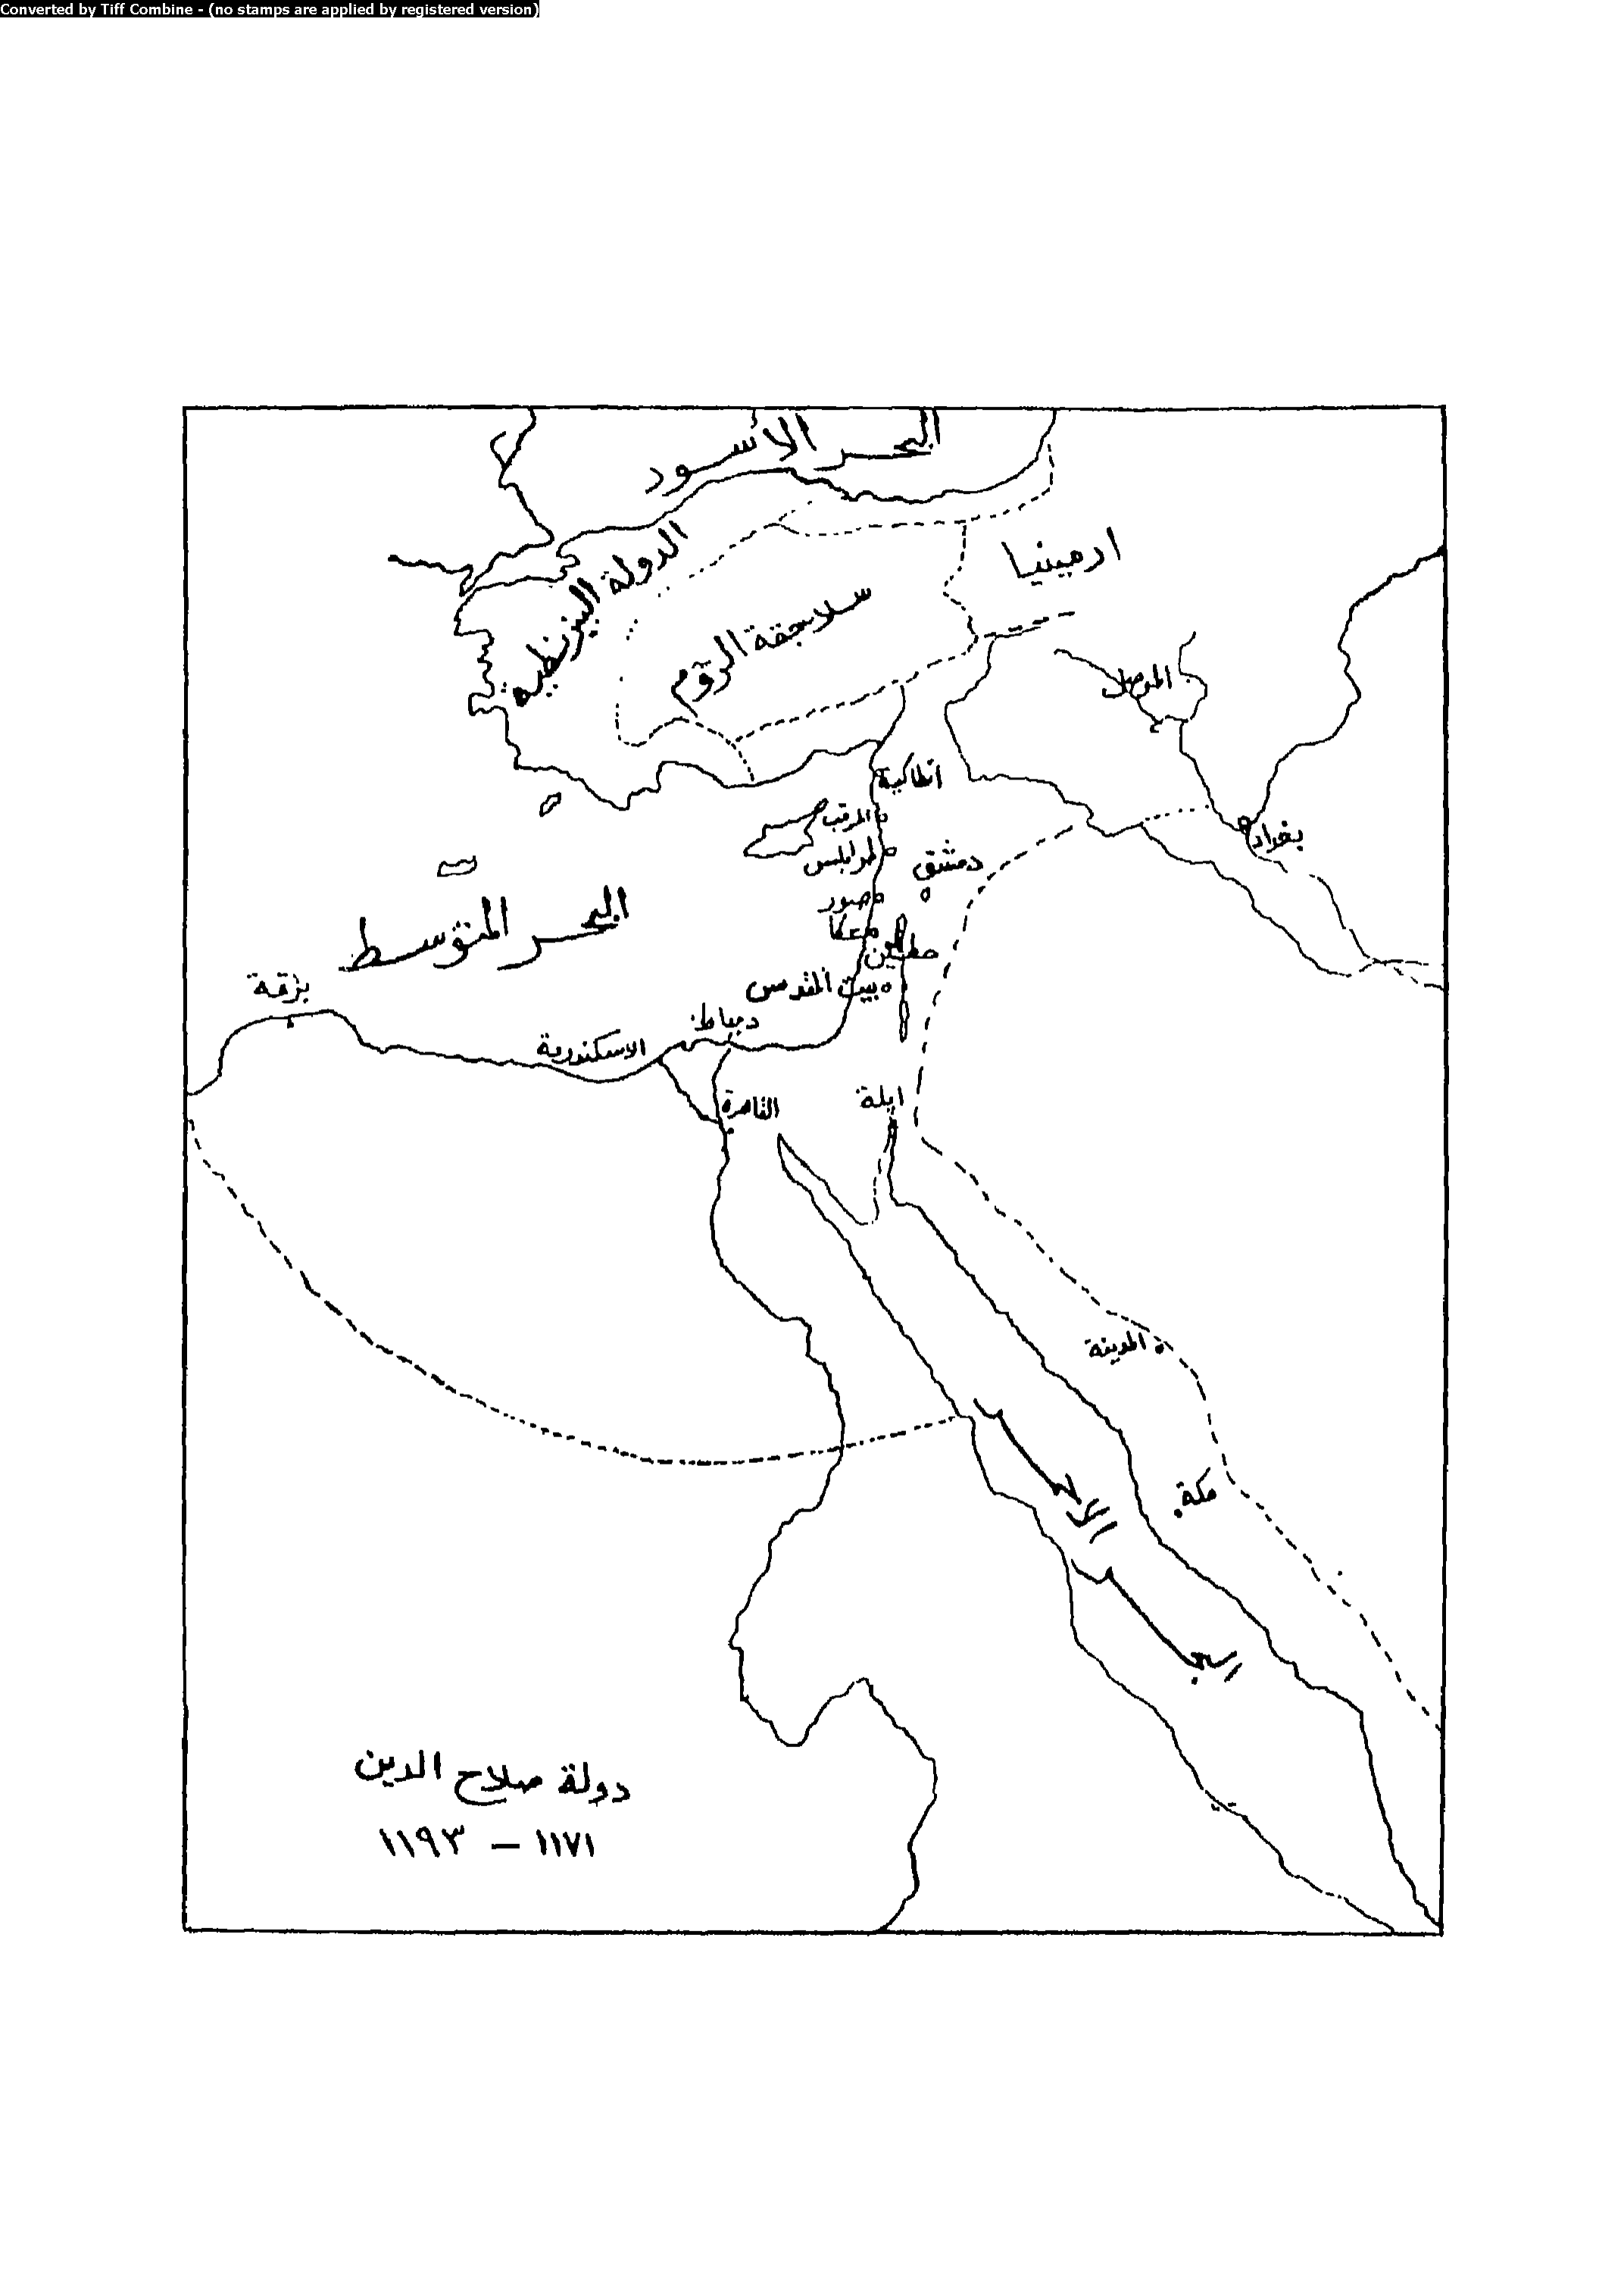 Converted by Tiff Combine - (no stamps are applied by registered version)
البحر الأسود
الدولة البيزنطية
ارمينيا
سلاجقة الروم
الموصل
انطاكية
المرقب
بغداد
طرابلس
دمشق
صور
عكا
حطين
البحر المتوسط
بيت المقدس
برقة
دمياط
الاسكندرية
القاهرة
ايلة
المدينة
مكة
دولة صلاح الدين
١١٧١ - ١١٩٣